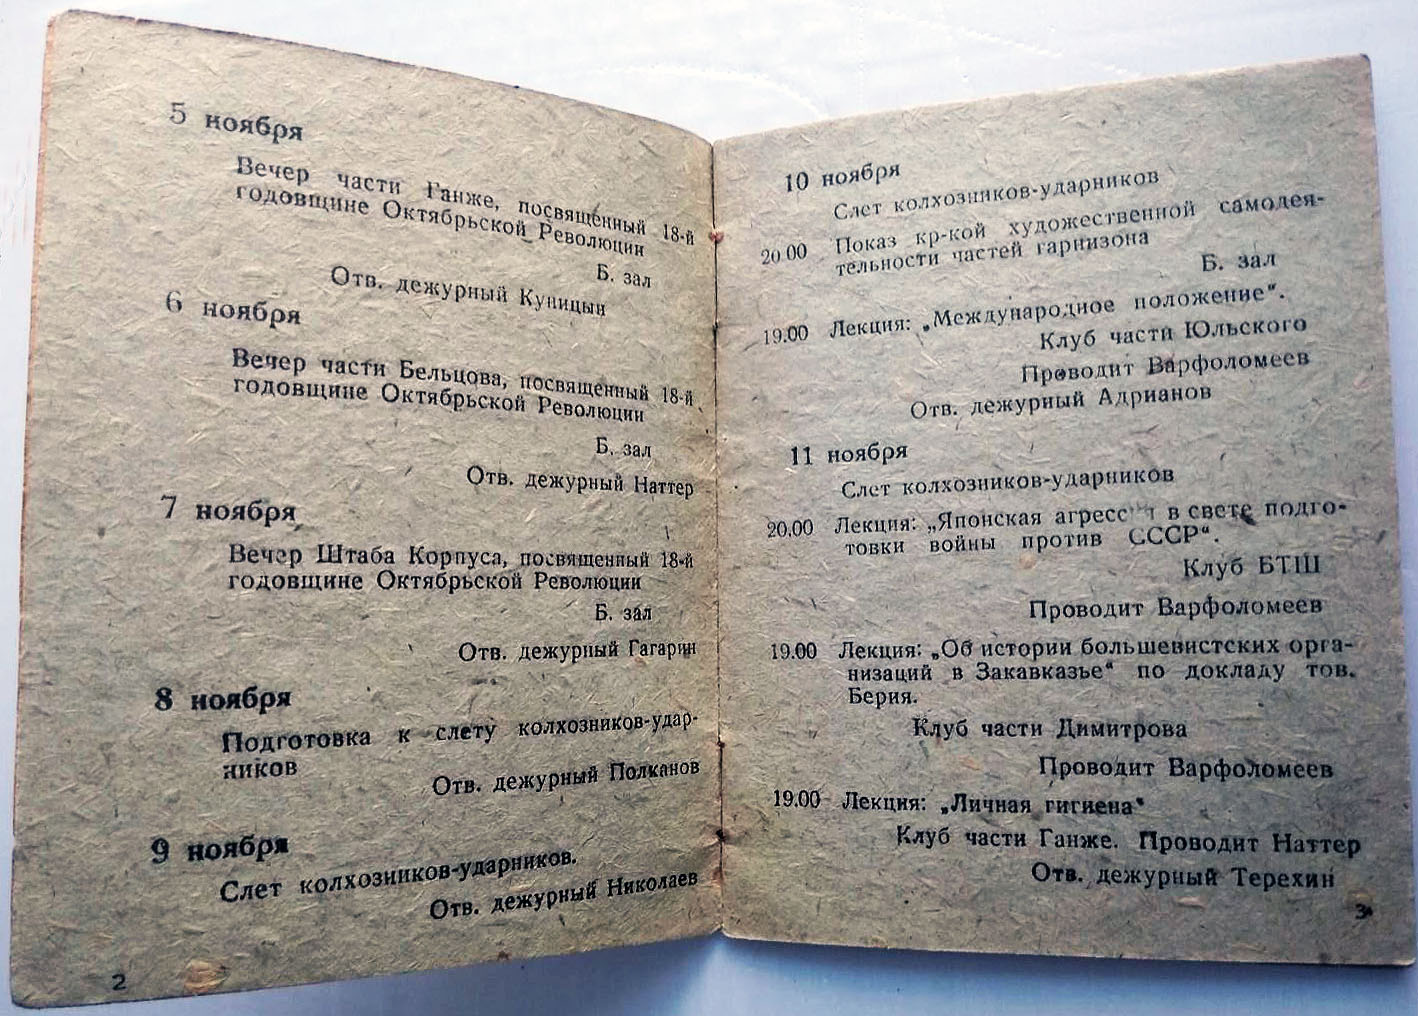 5 ноября
Вечер части Ганже, посвященный 18-й
годовщине Октябрьской Революции
Б. зал
Отв. дежурный Куницын
6 ноября
Вечер части Бельцова, посвященный 18-й
годовщине Октябрьской Революции
Б. зал
Отв. дежурный Наттер
7 ноября
Вечер Штаба Корпуса, посвященный 18-й
годовщине Октябрьской Революции
Б. зал
Отв. дежурный Гагарин
8 ноября
Подготовка к слету колхозников-удар-
ников
Отв. дежурный Полканов
9 ноября
Слет колхозников-ударников.
Отв. дежурный Николаев
2
10 ноября
Слет колхозников-ударников
20.00 Показ кр-кой художественной самодея-
тельности частей гарнизона
Б. зал
19.00 Лекция: „Международное положение“.
Клуб части Юльского
Проводит Варфоломеев
Отв. дежурный Адрианов
11 ноября
Слет колхозников-ударников
20.00 Лекция: „Японская агрессия в свете подго-
товки войны против СССР“.
Клуб БТШ
Проводит Варфоломеев
19.00 Лекция: „Об истории большевистских орга-
низаций в Закавказье“ по докладу тов.
Берия.
Клуб части Димитрова
Проводит Варфоломеев
19.00 Лекция: „Личная гигиена“
Клуб части Ганже. Проводит Наттер
Отв. дежурный Терехин
3